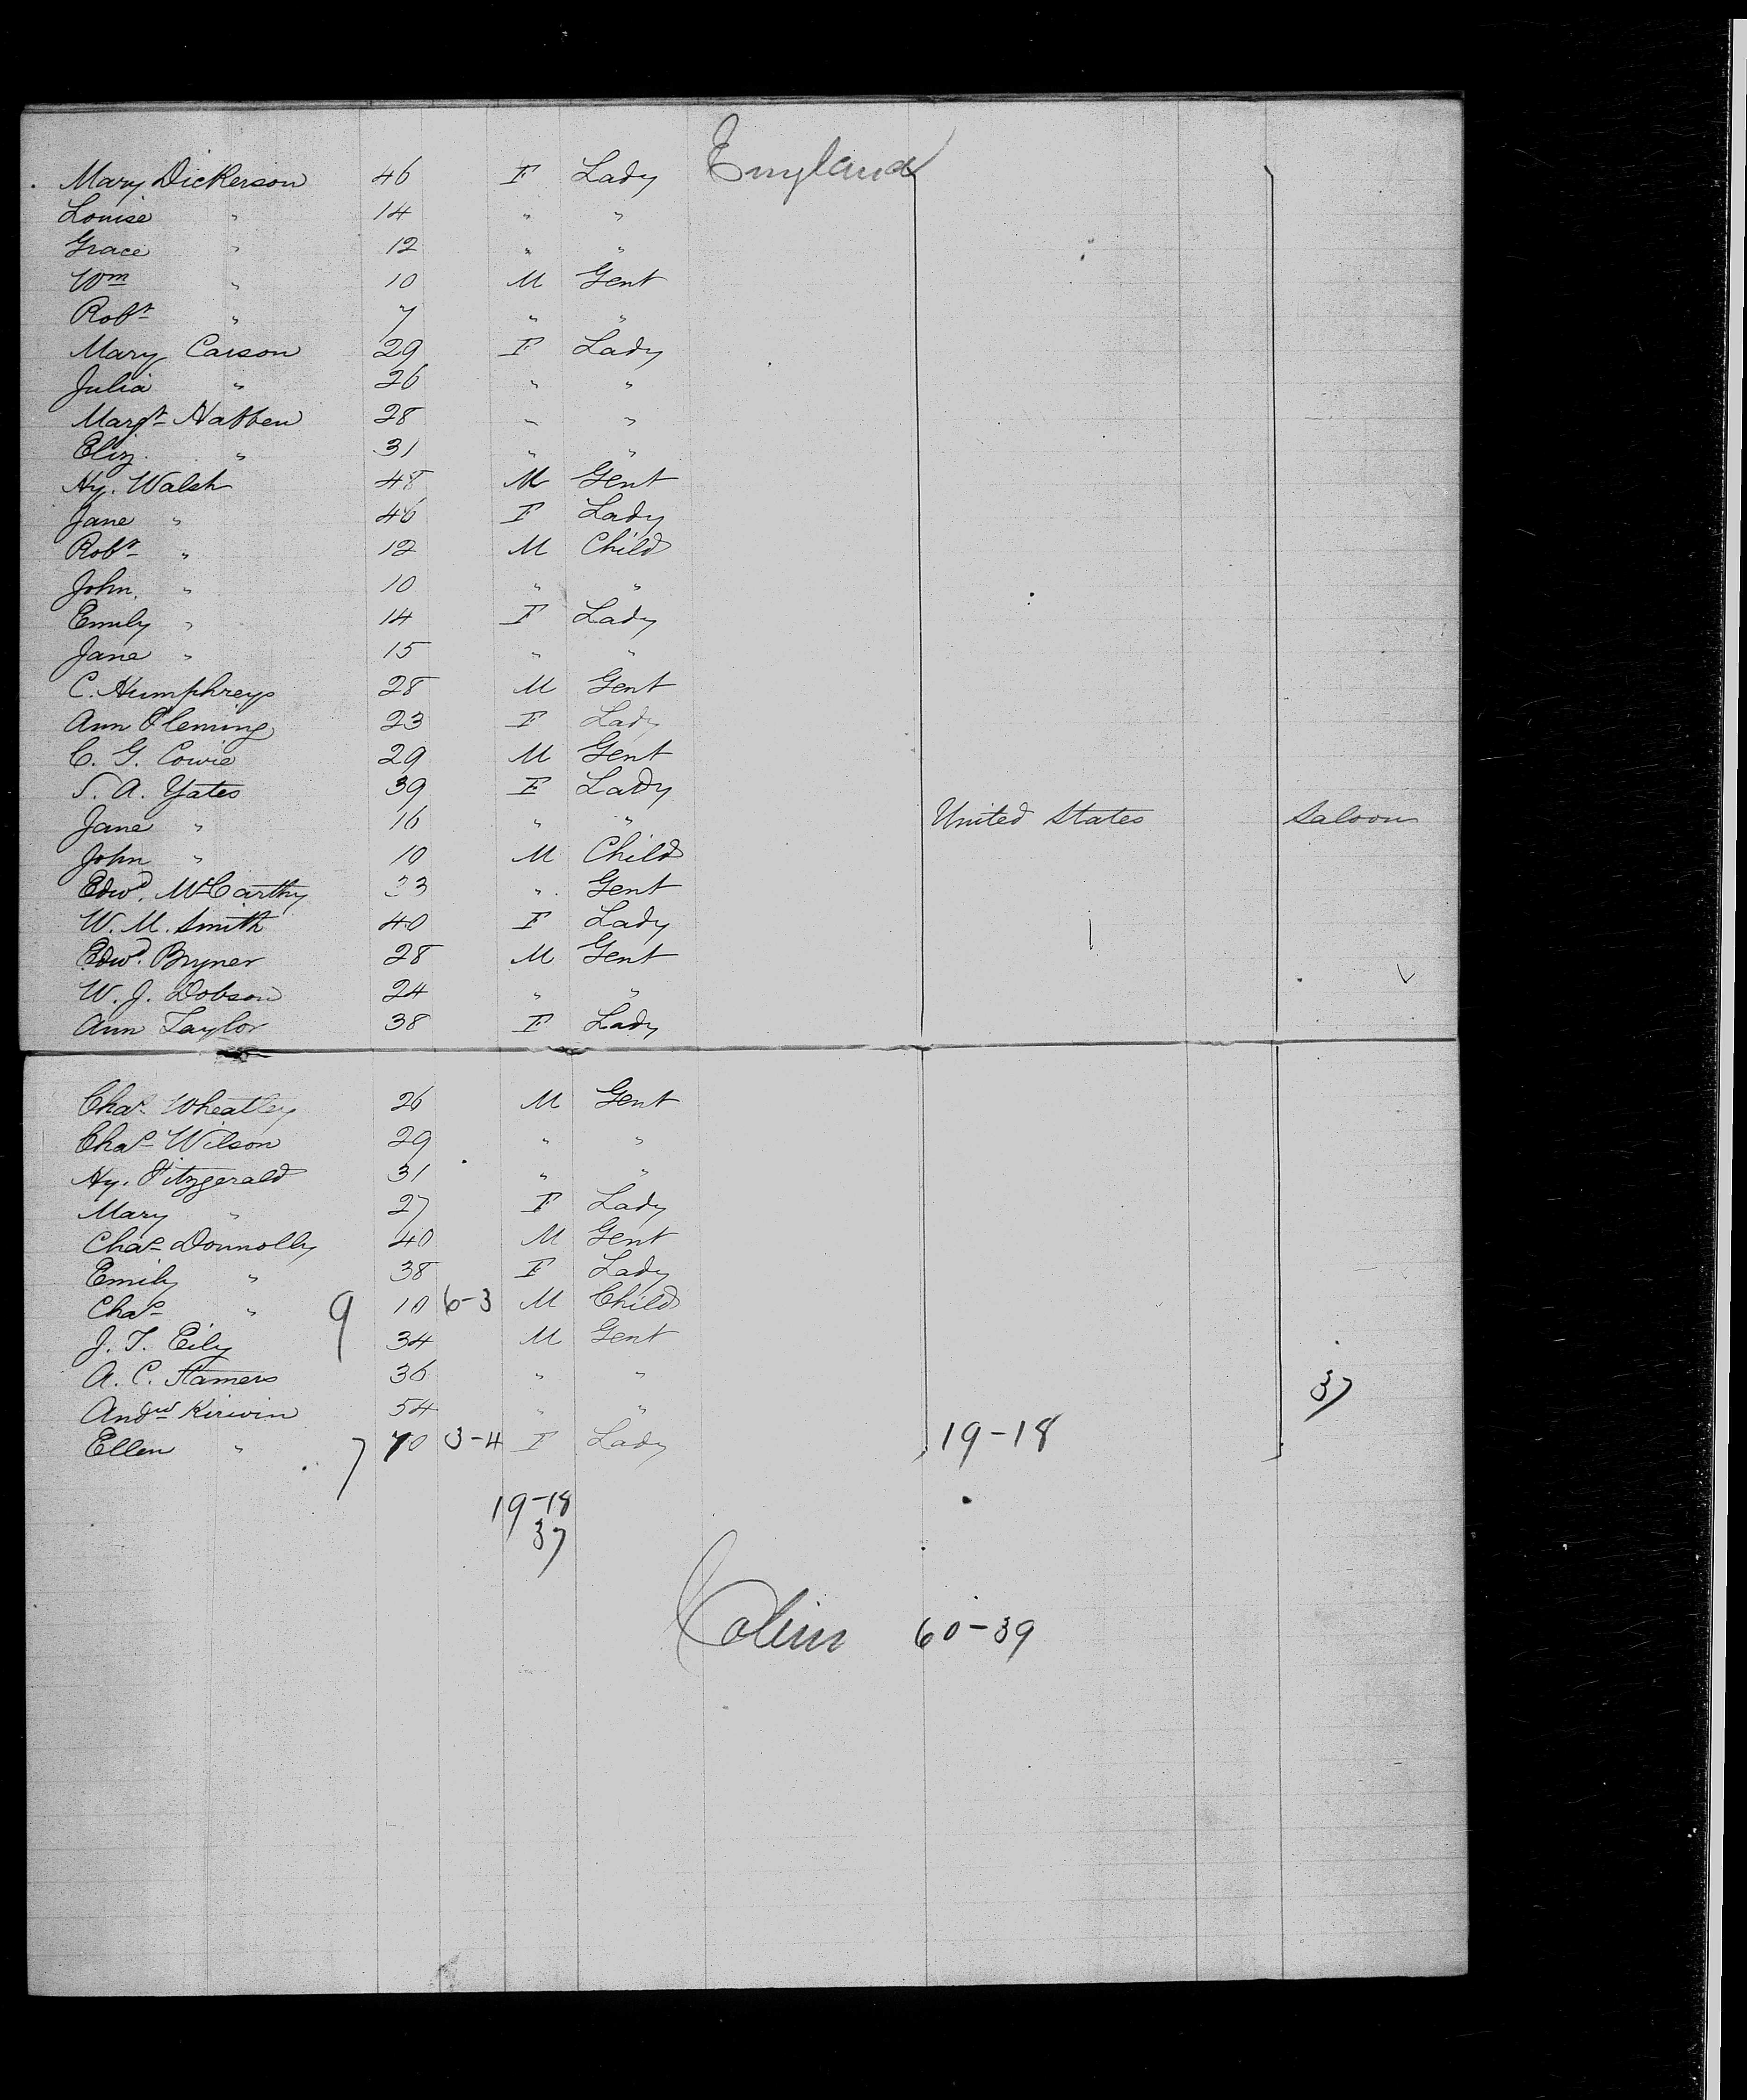 Mary Dickerson 46 F Lady England
Louise " 14 " "
Grace " 12 " "
Wm " 10 M Gent
Robt " 7 " "
Mary Carson 29 F Lady
Julia " 26 " "
Margt Habben 28 " "
Eliz. " 31 " "
Hy. Walsh 48 M Gent
Jane " 46 F Lady
Robt " 12 M Child
John. " 10 " "
Emily " 14 F Lady
Jane " 15 " "
C. Humphreys 28 M Gent
Ann Fleming 23 F Lady
C. G. Cowie 29 M Gent
S. A. Yates 39 F Lady
Jane " 16 " " United States Saloon
John " 10 M Child
Edwd. McCarthy 33 " Gent
W. M. Smith 40 F Lady
Edwd. Bryner 28 M Gent
W. J. Dobson 24 " "
Ann Taylor 38 F Lady
Chas Wheatley 26 M Gent
Chas Wilson 29 " "
Hy. Fitzgerald 31 " "
Mary " 27 F Lady
Chas Donnolly 40 M Gent
Emily " 38 F Lady
Chas " 9 10 6-3 M Child
J. T. Eily 34 M Gent
A. C. Stamers 36 " "
37
Andw Kirwin 54 " "
Ellen " 7 40 3-4 F Lady 19-18
19-18
37
Colin 60-39